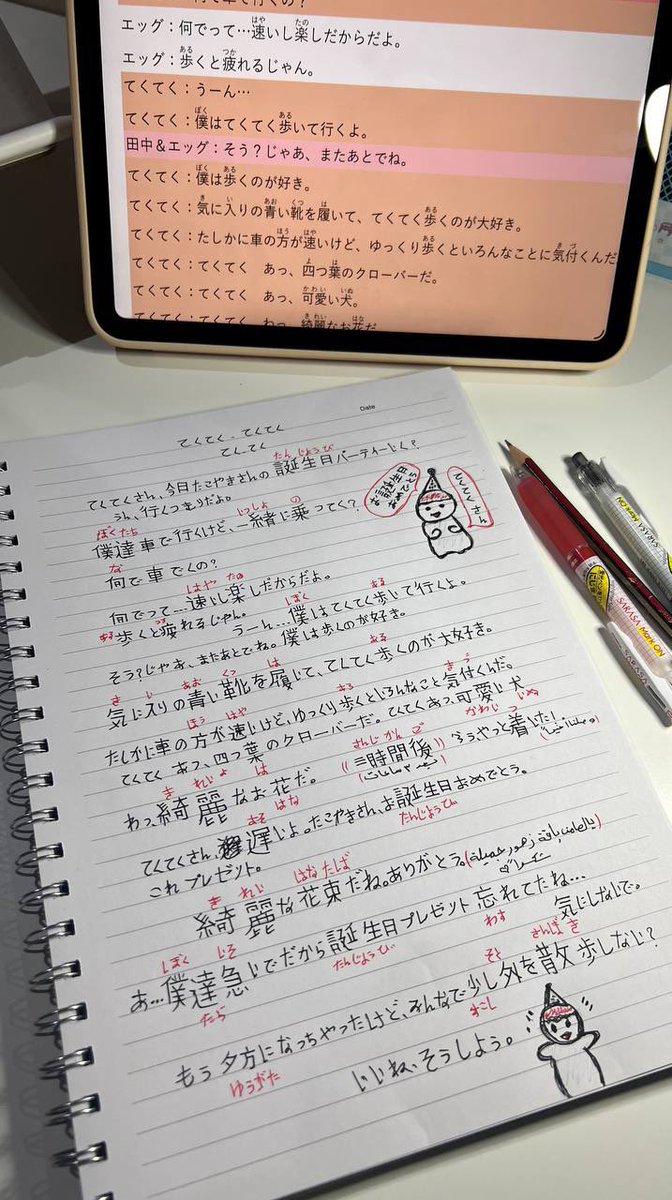 エッグ：何でって…速いし楽しだからだよ。
エッグ：歩くと疲れるじゃん。
てくてく：うーん…
てくてく：僕はてくてく歩いて行くよ。
田中＆エッグ：そう？じゃあ、またあとでね。
てくてく：僕は歩くのが好き。
てくてく：気に入りの青い靴を履いて、てくてく歩くのが大好き。
てくてく：たしかに車の方が速いけど、ゆっくり歩くといろんなことに気付くんだ
てくてく：てくてく　あっ、四つ葉のクローバーだ。
てくてく：てくてく　あっ、可愛い犬。
てくてく：てくてく　わっ、綺麗なお花だ
Date
てくてく・てくてく
てくてく
てくてくさん、今日たこやきさんの誕生日パーティーじん？
うん、行くつもりだよ。
お誕生日おめでとう
てくてくさん
僕達車で行くけど、一緒に乗ってく？
何で車でくの？
何でって…速いし楽しだからだよ。
歩くと疲れるじゃん。 うーん…僕はてくてく歩いて行くよ。
そう？じゃあ、またあとでね。僕は歩くのが好き。
気に入りの青い靴を履いて、てくてく歩くのが大好き。
たしかに車の方が速いけど、ゆっくり歩くといろんなこと気付くんだ。
てくてく あっ、四つ葉のクローバーだ。てくてくあっ、可愛い犬
わっ、綺麗なお花だ。 三時間後 やっと着いた！
てくてくさん、遅いよ。たこやきさん、お誕生日おめでとう。
これプレゼント。
綺麗な花束だね。ありがとう。
あ…僕達急いでだから誕生日プレゼント忘れてたね… 気にしないで。
もう夕方になっちゃったけど、みんなで少し外を散歩しない？
いいね、そうしよう。
SAKASA Mark ON